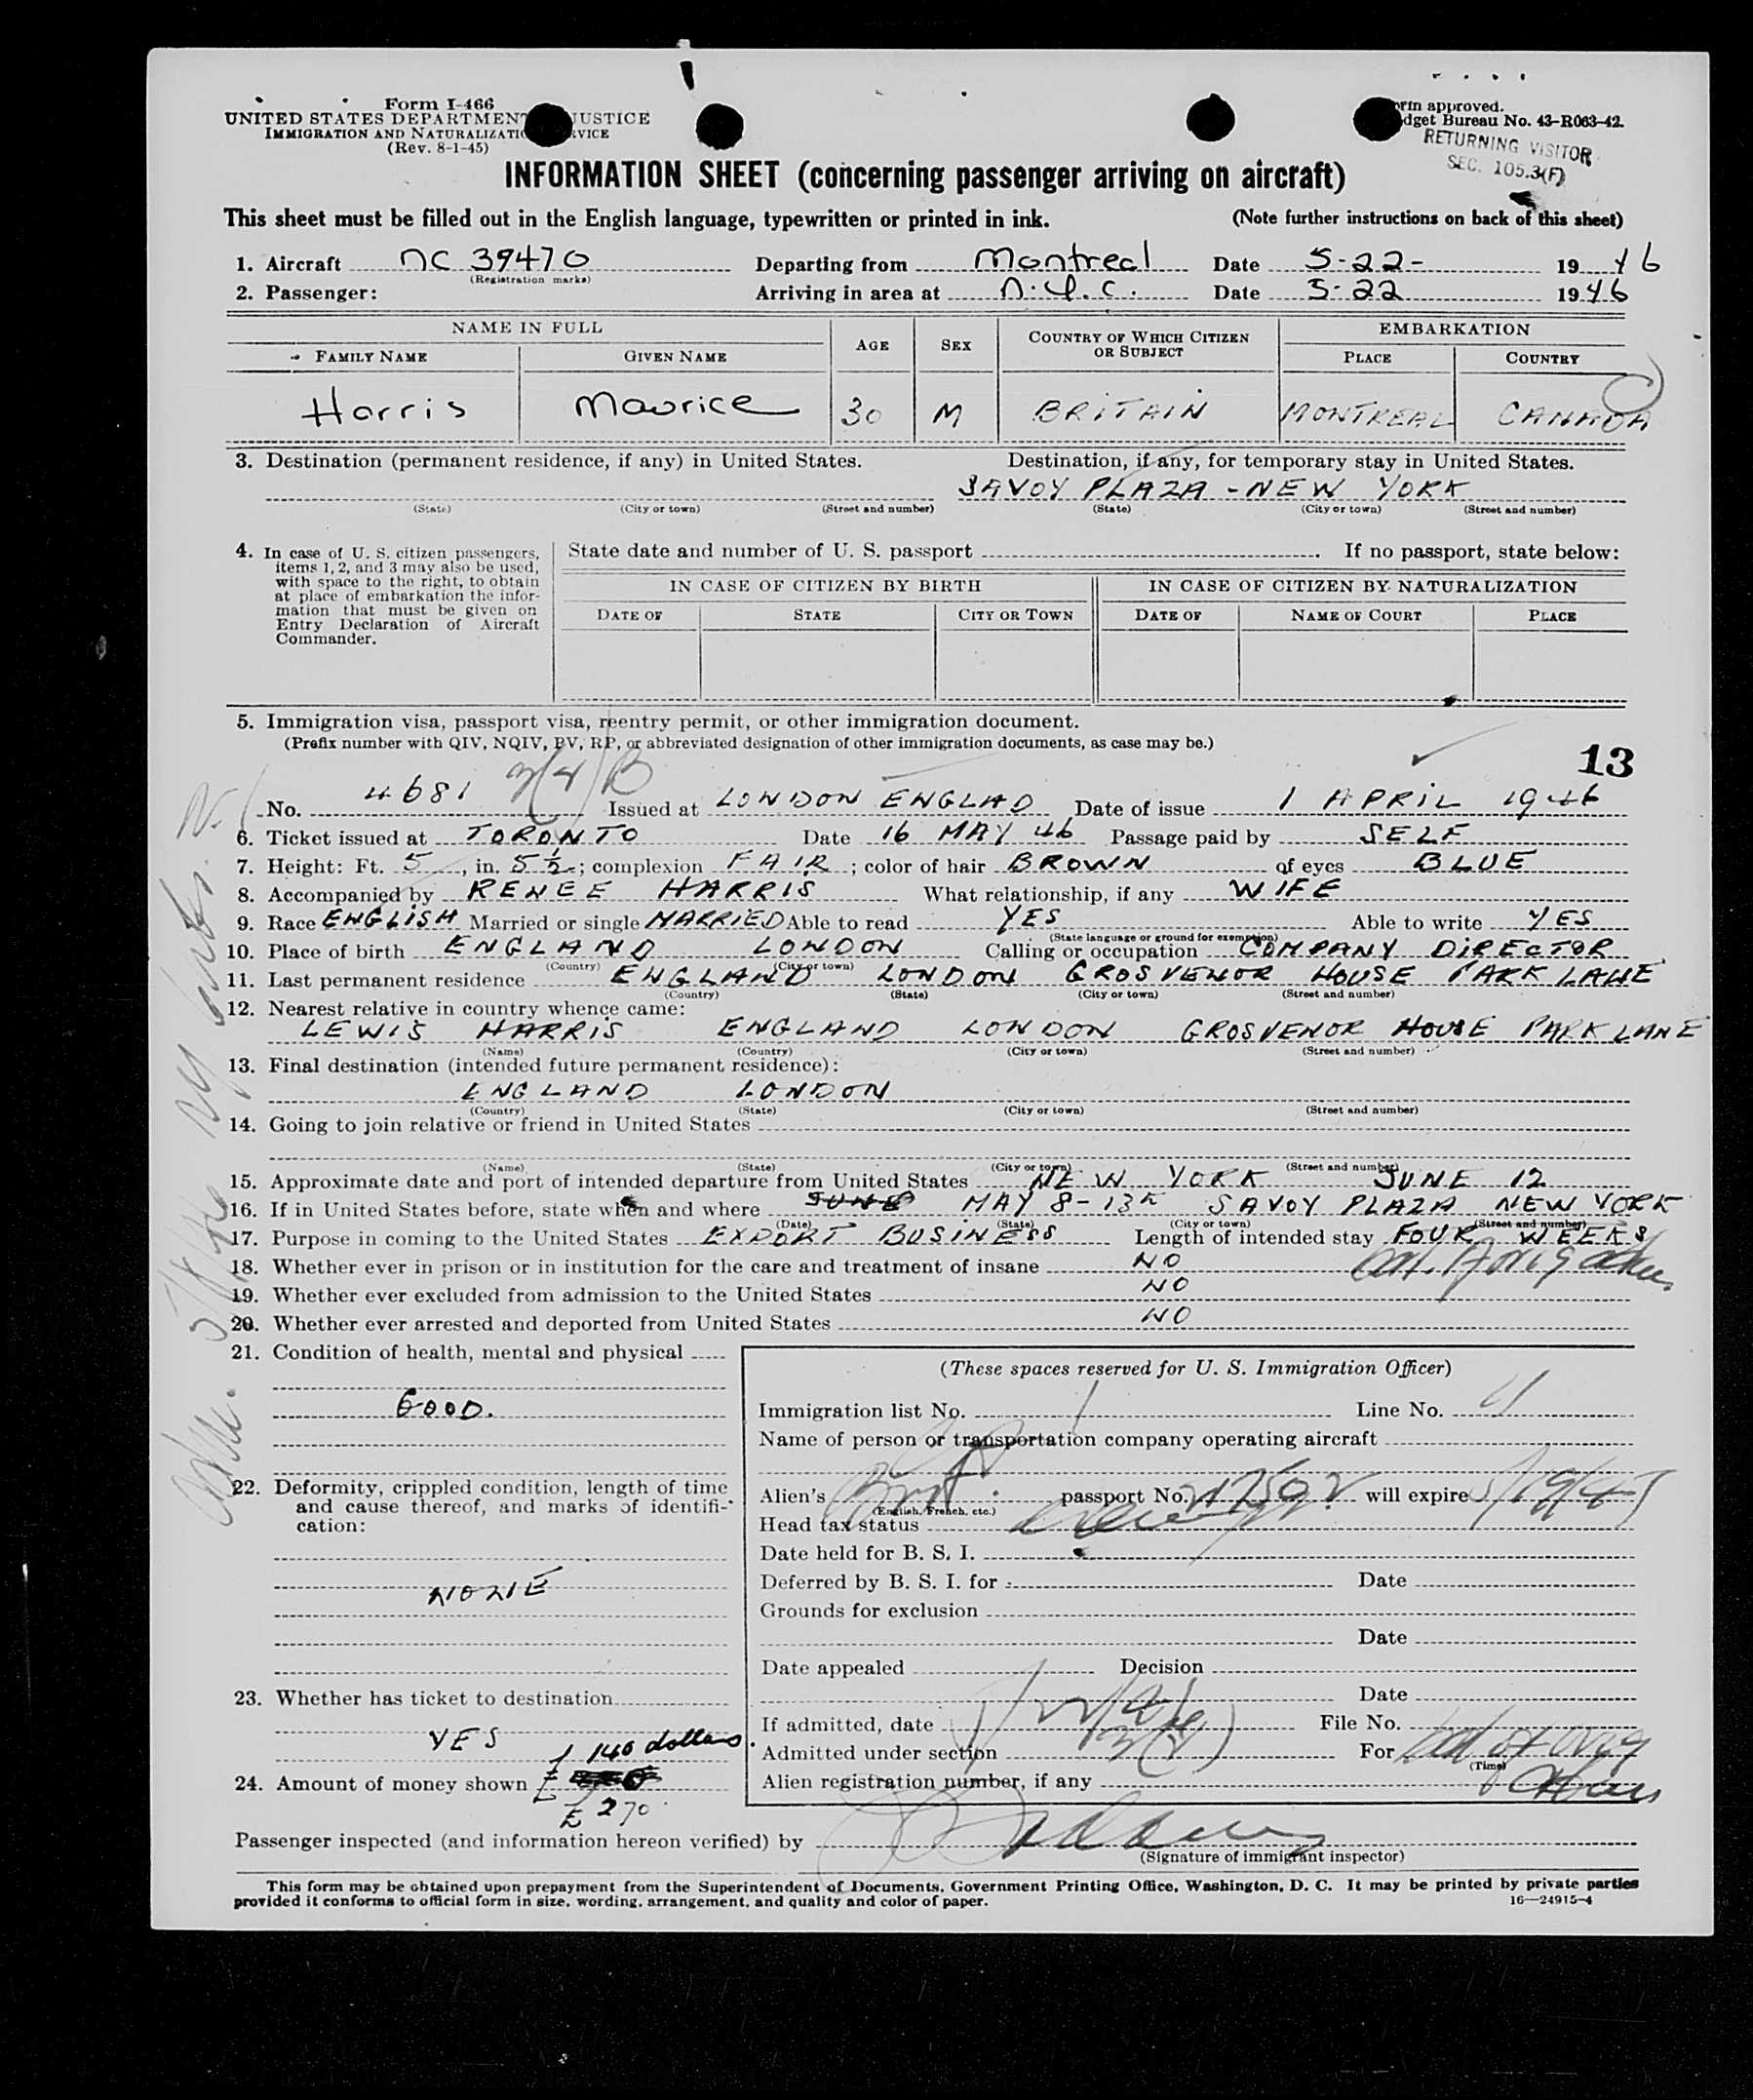 Form I-466
UNITED STATES DEPARTMENT JUSTICE
IMMIGRATION AND NATURALIZATION SERVICE
(Rev. 8-1-45)
approved.
Budget Bureau No. 43-R063-42.
RETURNING VISITOR
SEC. 105.3(F)
INFORMATION SHEET (concerning passenger arriving on aircraft)
This sheet must be filled out in the English language, typewritten or printed in ink. (Note further instructions on back of this sheet)
1. Aircraft NC 39470 Departing from Montreal Date 5-22- 1946
(Registration marks)
2. Passenger: Arriving in area at N.Y.C. Date 5-22 1946
NAME IN FULL AGE SEX COUNTRY OF WHICH CITIZEN OR SUBJECT EMBARKATION
FAMILY NAME GIVEN NAME PLACE COUNTRY
Harris Maurice 30 M BRITAIN MONTREAL CANADA
3. Destination (permanent residence, if any) in United States. Destination, if any, for temporary stay in United States.
SAVOY PLAZA - NEW YORK
(State) (City or town) (Street and number) (State) (City or town) (Street and number)
4. In case of U. S. citizen passengers, items 1, 2, and 3 may also be used, with space to the right, to obtain at place of embarkation the information that must be given on Entry Declaration of Aircraft Commander.
State date and number of U. S. passport . If no passport, state below:
IN CASE OF CITIZEN BY BIRTH IN CASE OF CITIZEN BY NATURALIZATION
DATE OF STATE CITY OR TOWN DATE OF NAME OF COURT PLACE
5. Immigration visa, passport visa, reentry permit, or other immigration document.
(Prefix number with QIV, NQIV, PV, RP, or abbreviated designation of other immigration documents, as case may be.)
13
3(4)B
No. 4681 Issued at LONDON ENGLAD Date of issue 1 APRIL 1946
6. Ticket issued at TORONTO Date 16 MAY 46 Passage paid by SELF
7. Height: Ft. 5, in. 5½; complexion FAIR; color of hair BROWN of eyes BLUE
8. Accompanied by RENEE HARRIS What relationship, if any WIFE
9. Race ENGLISH Married or single MARRIED Able to read YES Able to write YES
(State language or ground for exemption)
10. Place of birth ENGLAND LONDON Calling or occupation COMPANY DIRECTOR
(Country) (City or town)
11. Last permanent residence ENGLAND LONDON GROSVENOR HOUSE PARK LANE
(Country) (State) (City or town) (Street and number)
12. Nearest relative in country whence came:
LEWIS HARRIS ENGLAND LONDON GROSVENOR HOUSE PARK LANE
(Name) (Country) (City or town) (Street and number)
13. Final destination (intended future permanent residence):
ENGLAND LONDON
(Country) (State) (City or town) (Street and number)
14. Going to join relative or friend in United States
(Name) (State) (City or town) (Street and number)
15. Approximate date and port of intended departure from United States NEW YORK JUNE 12
16. If in United States before, state when and where MAY 8-13th SAVOY PLAZA NEW YORK
(Date) (State) (City or town) (Street and number)
17. Purpose in coming to the United States EXPORT BUSINESS Length of intended stay FOUR WEEKS
18. Whether ever in prison or in institution for the care and treatment of insane NO
19. Whether ever excluded from admission to the United States NO
20. Whether ever arrested and deported from United States NO
21. Condition of health, mental and physical
GOOD.
22. Deformity, crippled condition, length of time and cause thereof, and marks of identification:
NONE
23. Whether has ticket to destination
YES
140 dollars.
24. Amount of money shown £
£ 270
(These spaces reserved for U. S. Immigration Officer)
Immigration list No. 1 Line No. 4
Name of person or transportation company operating aircraft
Alien's Brit. passport No. will expire
(English, French, etc.)
Head tax status
Date held for B. S. I.
Deferred by B. S. I. for Date
Grounds for exclusion
Date
Date appealed Decision
Date
If admitted, date File No.
Admitted under section 3(4) For
(Time)
Alien registration number, if any
Passenger inspected (and information hereon verified) by
(Signature of immigrant inspector)
This form may be obtained upon prepayment from the Superintendent of Documents, Government Printing Office, Washington, D. C. It may be printed by private parties
provided it conforms to official form in size, wording, arrangement, and quality and color of paper. 16—24915-4